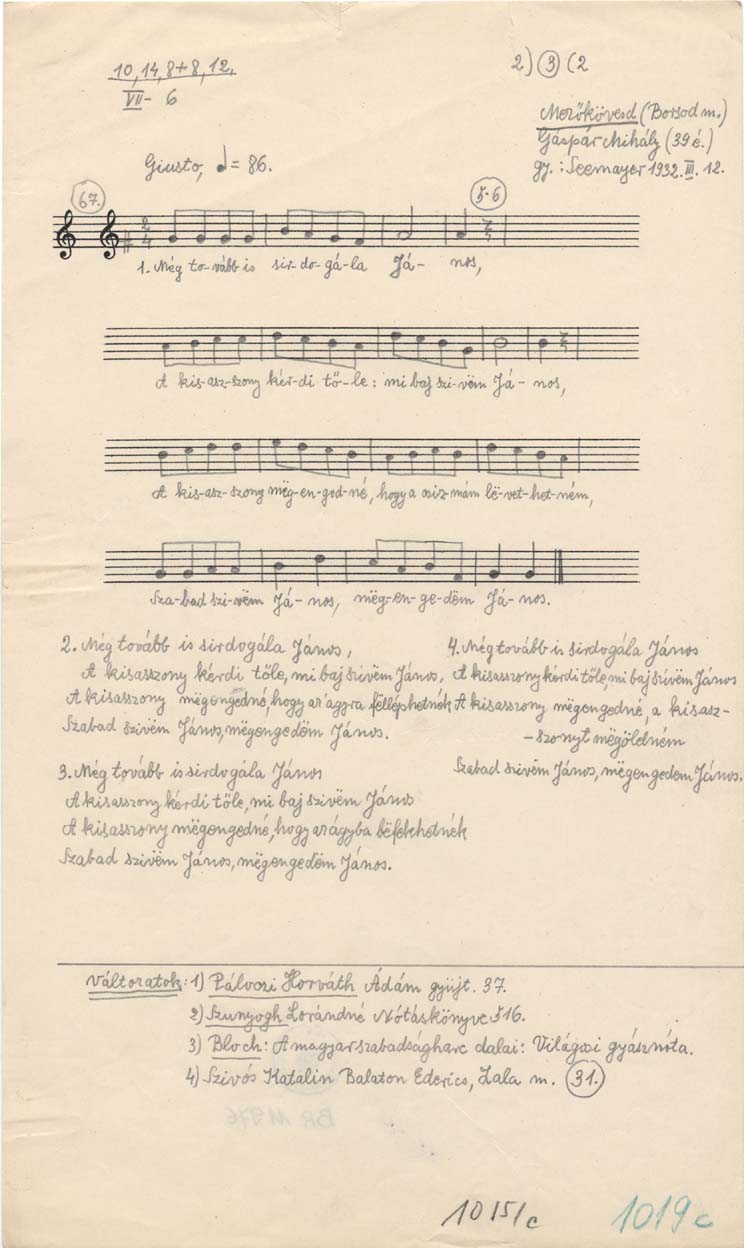 10, 14, 8+8, 12.
VII - 6
2) 3 (2
Mezőkövesd (Borsod m.)
Gáspár Mihály (39 é.)
gy. : Seemayer 1932. III. 12.
Giusto, = 86.
67.
5·6
2
4
1. Még to-vább is sir-do-gá-la Já- nos,
A kis-asz-szony kér-di tő-le : mi baj szi-vëm Já- nos,
A kis-asz-szony mëg-en-ged-né, hogy a csiz-mám lë-vet-het-ném,
Sza-bad szi-vëm Já- nos, mëg-en-ge-dëm Já- nos.
2. Még tovább is sirdogála János,
A kisasszony kérdi tőle, mi baj szivëm János,
A kisasszony mëgengedné, hogy az ágyra fëlléphetnék
Szabad szivëm János, mëgengedëm János.
3. Még tovább is sirdogála János
A kisasszony kérdi tőle, mi baj szivëm János
A kisasszony mëgengedné, hogy az ágyba bëfekhetnék
Szabad szivëm János, mëgengedëm János.
4. Még tovább is sirdogála János
A kisasszony kérdi tőle, mi baj szivëm János
A kisasszony mëgengedné, a kisasz-
-szonyt mëgölelném
Szabad szivëm János, mëgengedem János.
Változatok: 1) Pálóczi Horváth Ádám gyüjt. 37.
2) Szunyogh Lorándné Nótáskönyve 516.
3) Bloch: A magyar szabadságharc dalai: Világosi gyásznóta.
4) Szivós Katalin Balaton Ederics, Zala m. 31.
BR 11976
1015/c
1019c